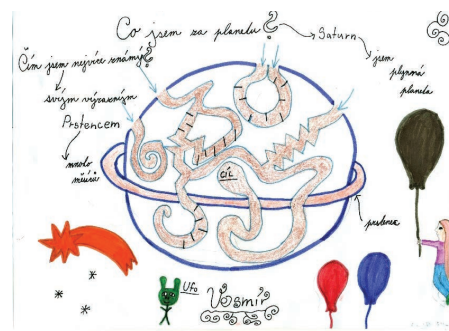 Co jsem za planetu?
Saturn
jsem
plynná
planeta
Čím jsem nejvíce známý?
svým výrazným
Prstencem
mnoho
měsíců
cíl
prstenec
Ufo
Vesmír